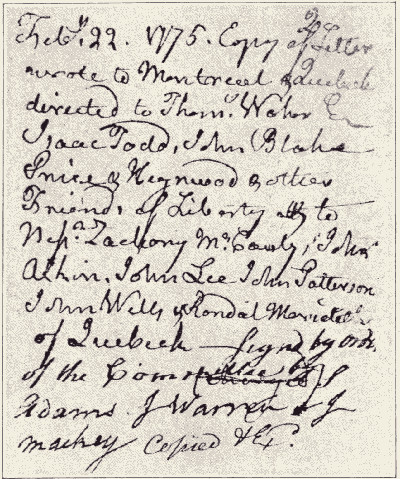 Febʸ. 22. 1775. Copy of a Letter
wrote to Montreal & Quebeck
directed to Thomˢ Walker
Isaac Todd, John Blake
Price & Heywood & other
Friends of Liberty & to
Zachary Mᶜ Cauly, John
Atkin, John Lee John Patterson
John Wells & Randal
of Quebeck — Signd by Ordr.
of the Committee by S
Adams J Warren & J
mackey Copied & Exᵈ.